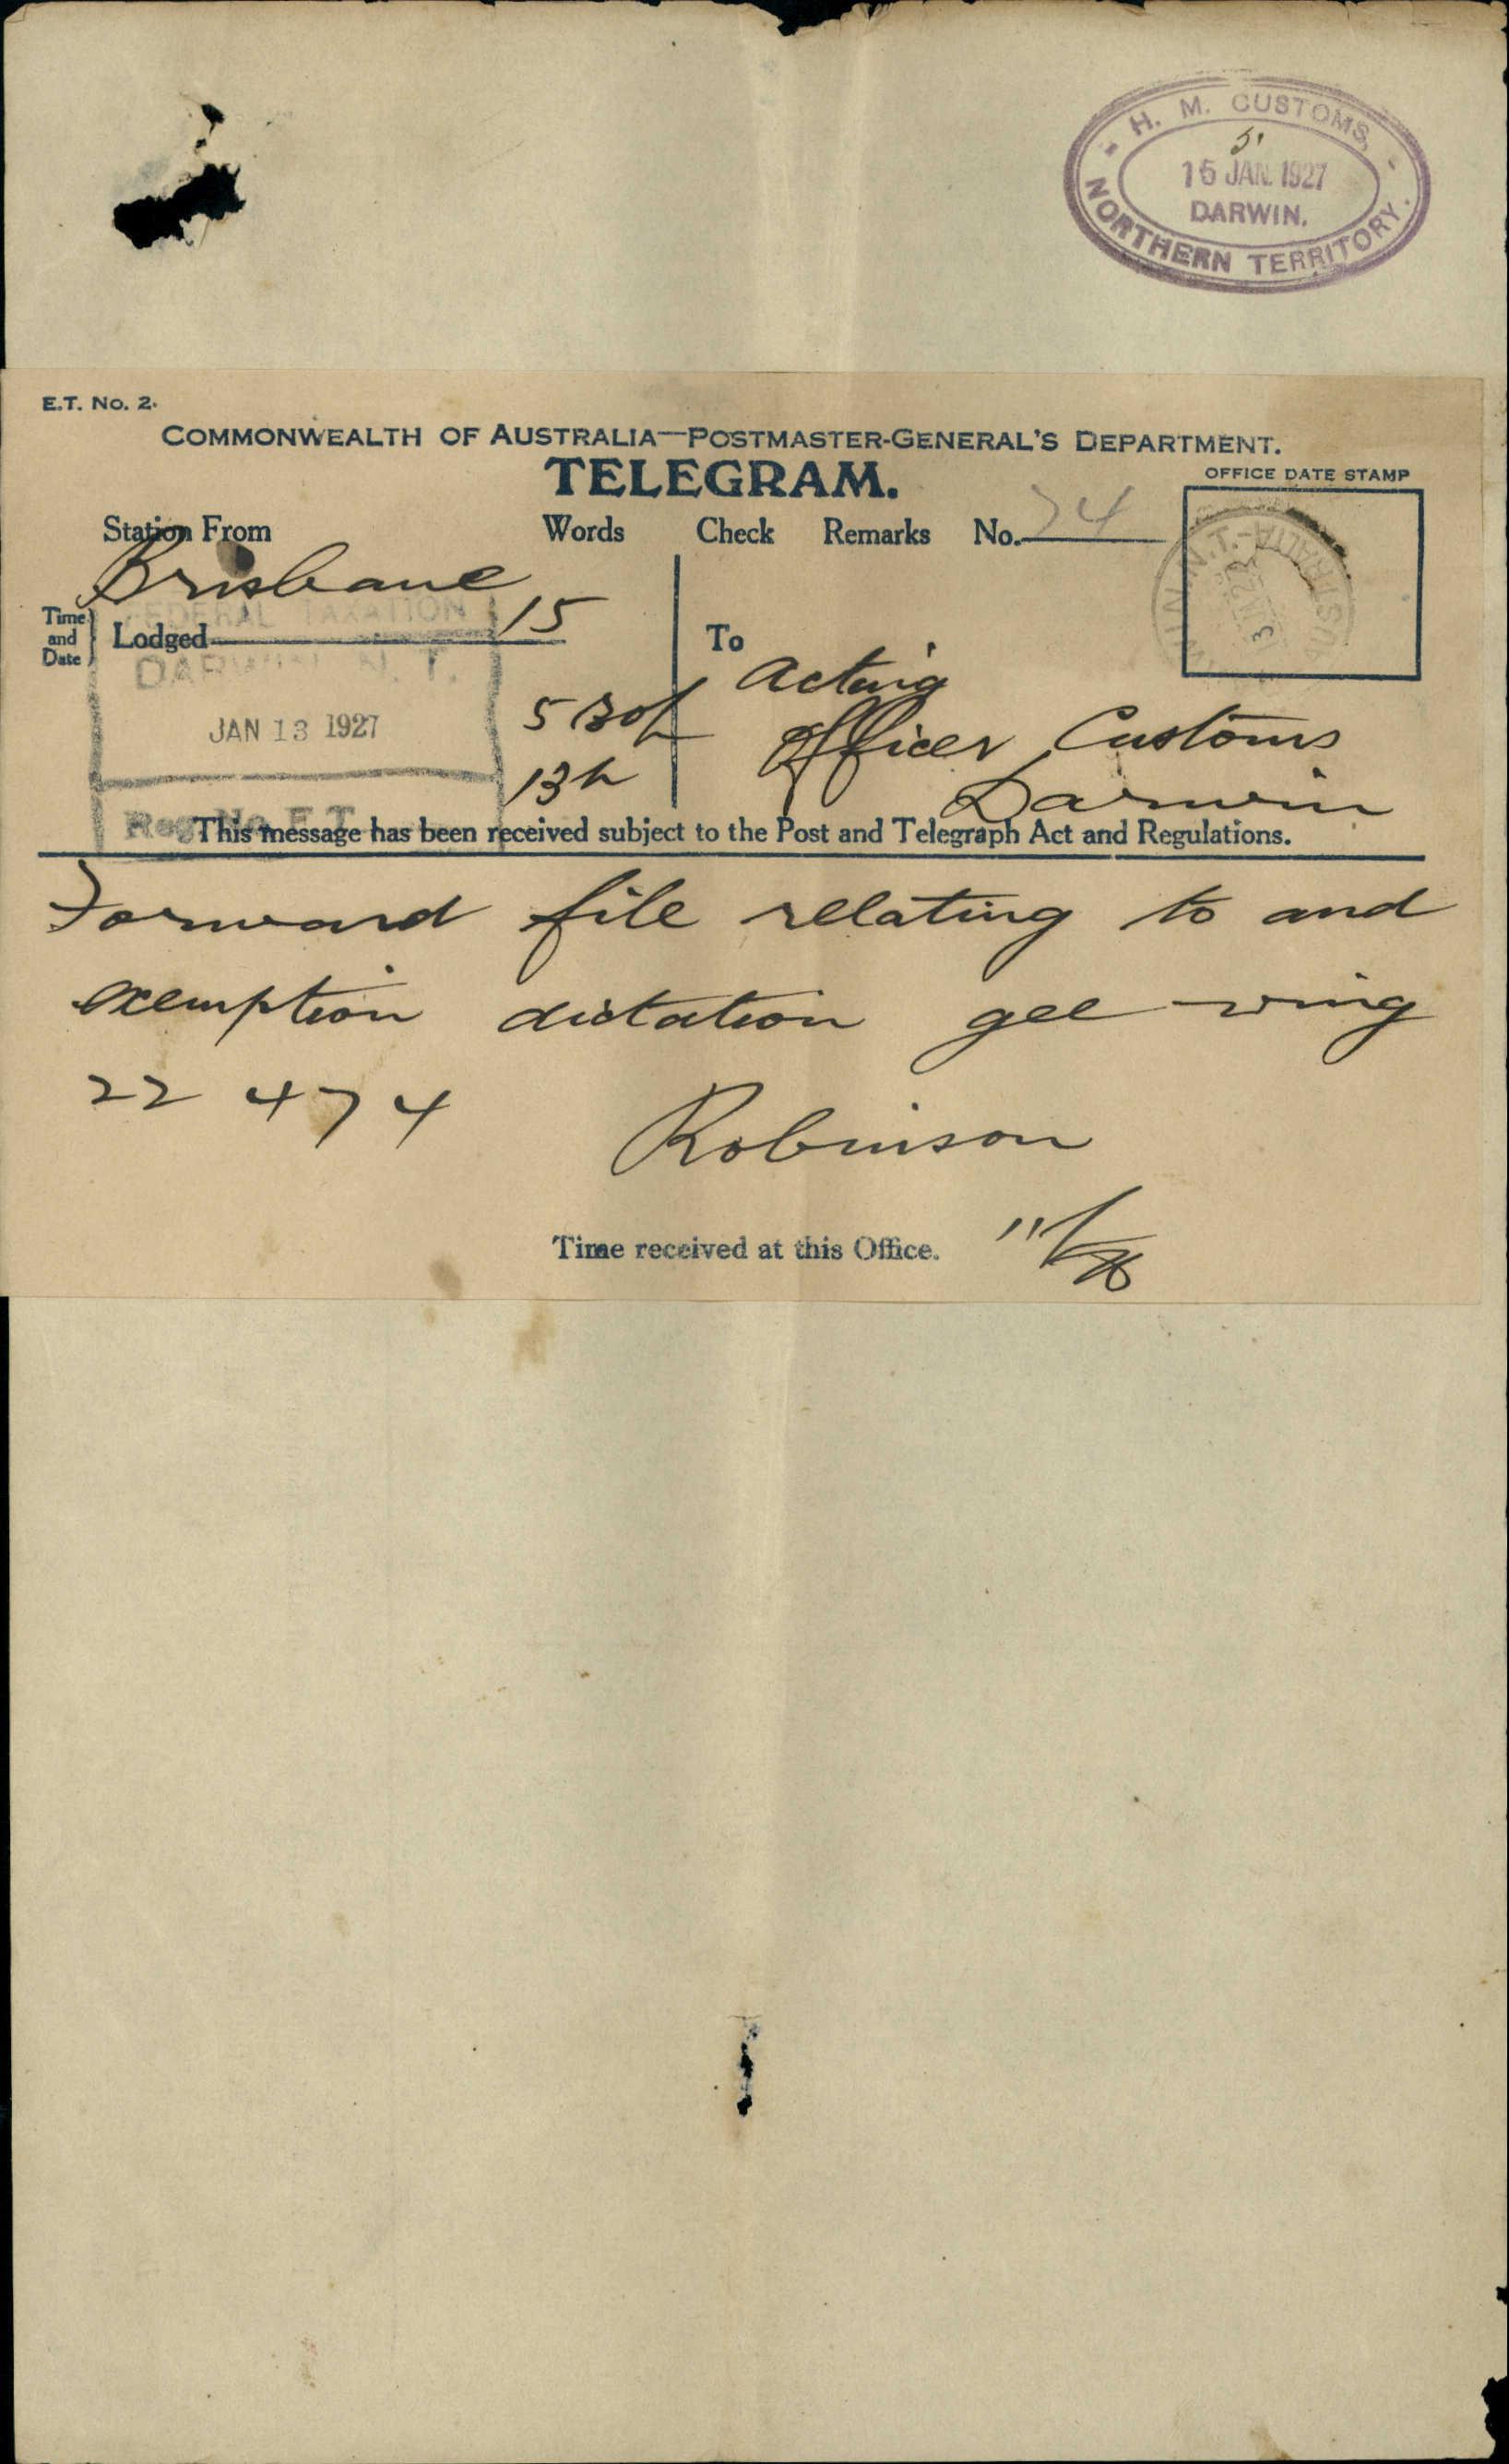 H. M. CUSTOMS,
5'
15 JAN. 1927
DARWIN.
NORTHERN TERRITORY.
E.T. No. 2.
COMMONWEALTH OF AUSTRALIA—POSTMASTER-GENERAL'S DEPARTMENT.
TELEGRAM.
OFFICE DATE STAMP
Station From Words Check Remarks No. 74
Brisbane
FEDERAL TAXATION
Time and Date } Lodged 15
To
DARWIN N. T.
Acting
JAN 13 1927
5 30p
Officer Customs
13th
Darwin
Reg. No. F.T.
This message has been received subject to the Post and Telegraph Act and Regulations.
Forward file relating to and
exemption dictation gee wing
22 474
Robinson
Time received at this Office.